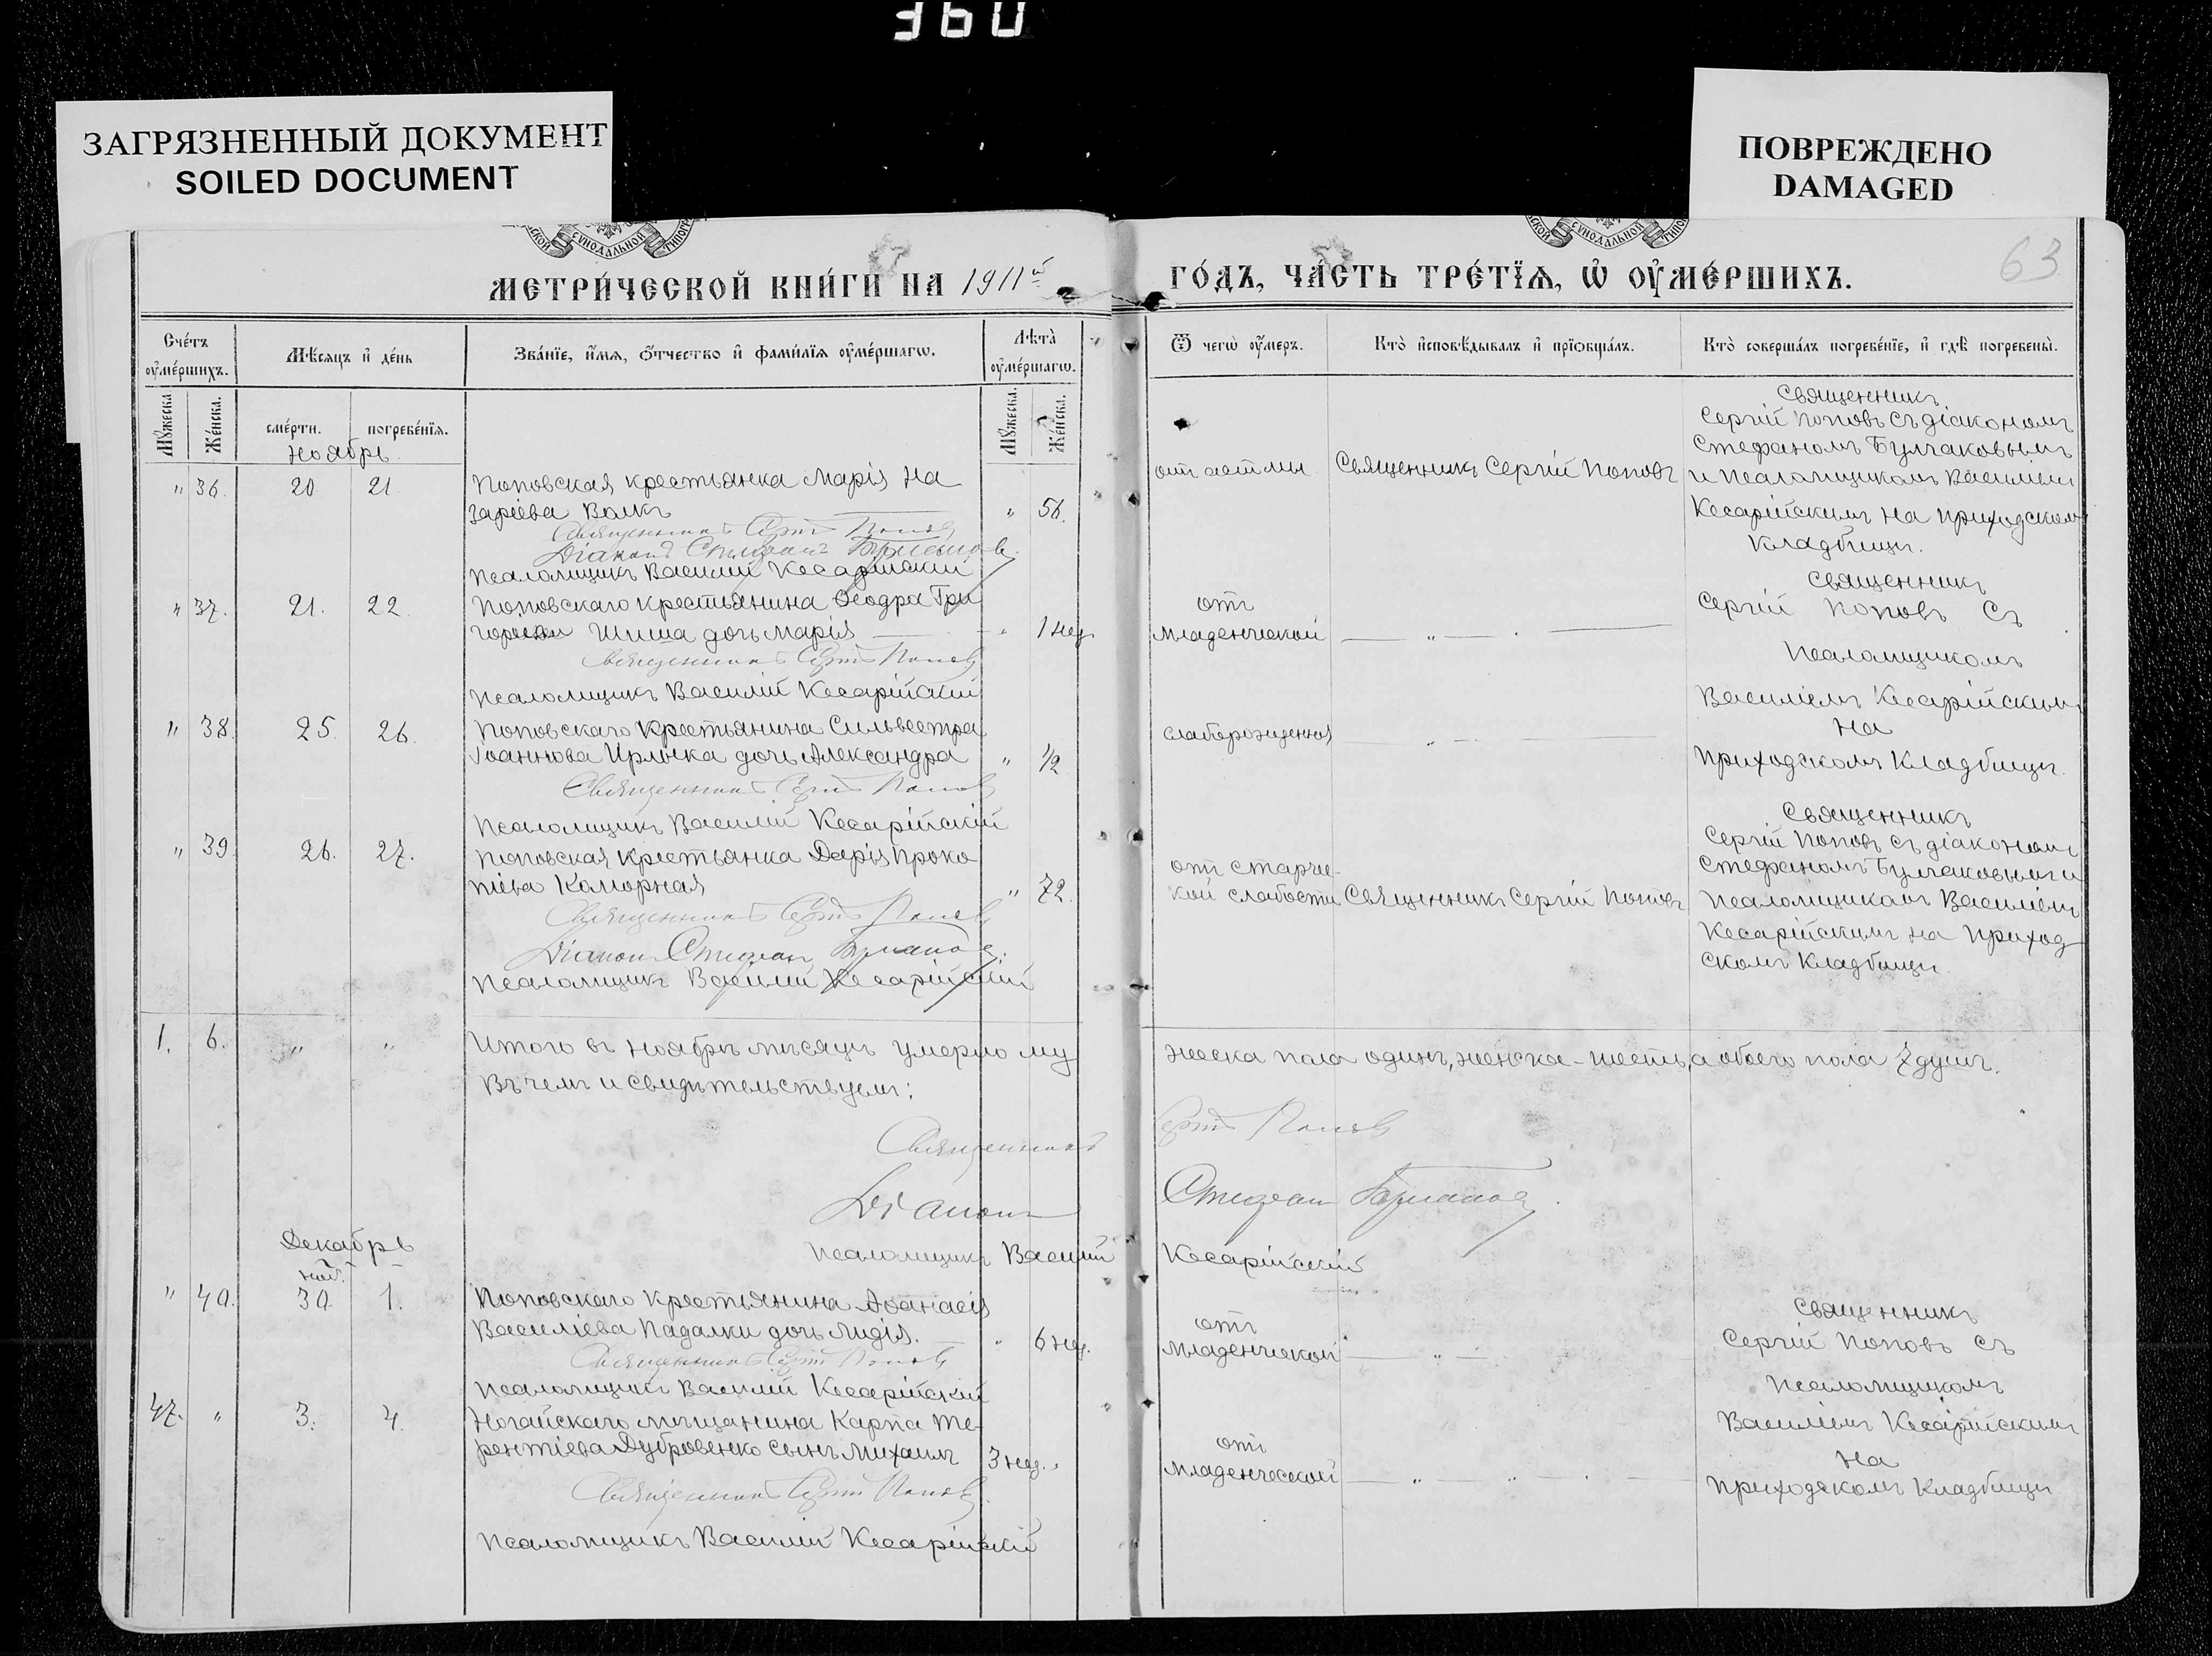 360
ЗАГРЯЗНЕННЫЙ ДОКУМЕНТ
SOILED DOCUMENT
ПОВРЕЖДЕНО
DAMAGED
63
МЕТРИ́ЧЕСКОЙ КНИ́ГИ НА 1911й
ГО́ДЪ, ЧА́СТЬ ТРЕ́ТЇѦ, Ѡ҆ ОУ҆МЕ́РШИХЪ.
Сче́тъ оу҆ме́ршихъ.
Мѣ́сѧцъ и҆ де́нь
Зва́нїе, и҆́мѧ, ѻ҆́тчество и҆ фами́лїѧ оу҆ме́ршагѡ.
Лѣ́та оу҆ме́ршагѡ.
Ѿ чегѡ̀ оу҆́меръ.
Кто̀ и҆сповѣ́дывалъ и҆ прїѻбща́лъ.
Кто̀ соверша́лъ погребе́нїе, и҆ гдѣ̀ погребены̀.
Мꙋ́жеска.
Же́нска.
сме́рти.
погребе́нїѧ.
Мꙋ́жеска.
Же́нска.
Ноябрь
" 36. 20 21 Поповская крестьянка Марія На
заріева Волкъ " 56.
Священникъ Сергій Поповъ
Діаконъ Стефанъ
Псаломщикъ Василій Кесарійскій
отъ астмы
Священникъ Сергій Поповъ
Священникъ
Сергій Поповъ съ діакономъ
Стефаномъ Булгаковымъ
и псаломщикомъ Василіемъ
Кесарійскимъ на приходскомъ
кладбищѣ.
" 37. 21. 22 Поповскаго крестьянина Ѳеодра Гри
Шиша дочь Марія " 1 нед.
Священникъ Сергій Поповъ
Псаломщикъ Василій Кесарійскій
отъ
младенческой
"
Священникъ
Сергій Поповъ съ
псаломщикомъ
Василіемъ Кесарійскимъ
на
приходскомъ кладбищѣ.
" 38. 25. 26. Поповскаго крестьянина Сильвестра
Іоаннова Ирлыка дочь Александра " 1/2
Священникъ Сергій Поповъ
Псаломщикъ Василій Кесарійскій
слаборожденная
"
" 39. 26. 27. Поповская крестьянка Дарія Проко
піева Каморная " 72.
Священникъ Сергій Поповъ
Діаконъ Стефанъ
Псаломщикъ Василій Кесарійскій
отъ старче
кой слабости
Священникъ Сергій Поповъ
Священникъ
Сергій Поповъ съ діакономъ
Стефаномъ Булгаковымъ и
псаломщикомъ Василіемъ
Кесарійскимъ на приход
скомъ кладбищѣ.
1. 6. " " Итого въ ноябрѣ мѣсяцѣ умерло му
жеска пола одинъ, женска - шесть, а обоего пола 7 душъ.
Въ чемъ и свидѣтельствуемъ:
Священникъ Сергій Поповъ
Діаконъ Стефанъ
Псаломщикъ Василій Кесарійскій
Декабрь
ноя.
" 40. 30. 1. Поповскаго крестьянина Аѳанасія
Василіева Падалки дочь Лидія. " 6 нед.
Священникъ Сергій Поповъ
Псаломщикъ Василій Кесарійскій
отъ
младенческой
"
Священникъ
Сергій Поповъ съ
псаломщикомъ
Василіемъ Кесарійскимъ
на
приходскомъ кладбищѣ
47. " 3. 4. Ногайскаго мѣщанина Карпа Те
рентіева Дубровенко сынъ Михаилъ 3 нед. "
Священникъ Сергій Поповъ
Псаломщикъ Василій Кесарійскій
отъ
младенческой
" "